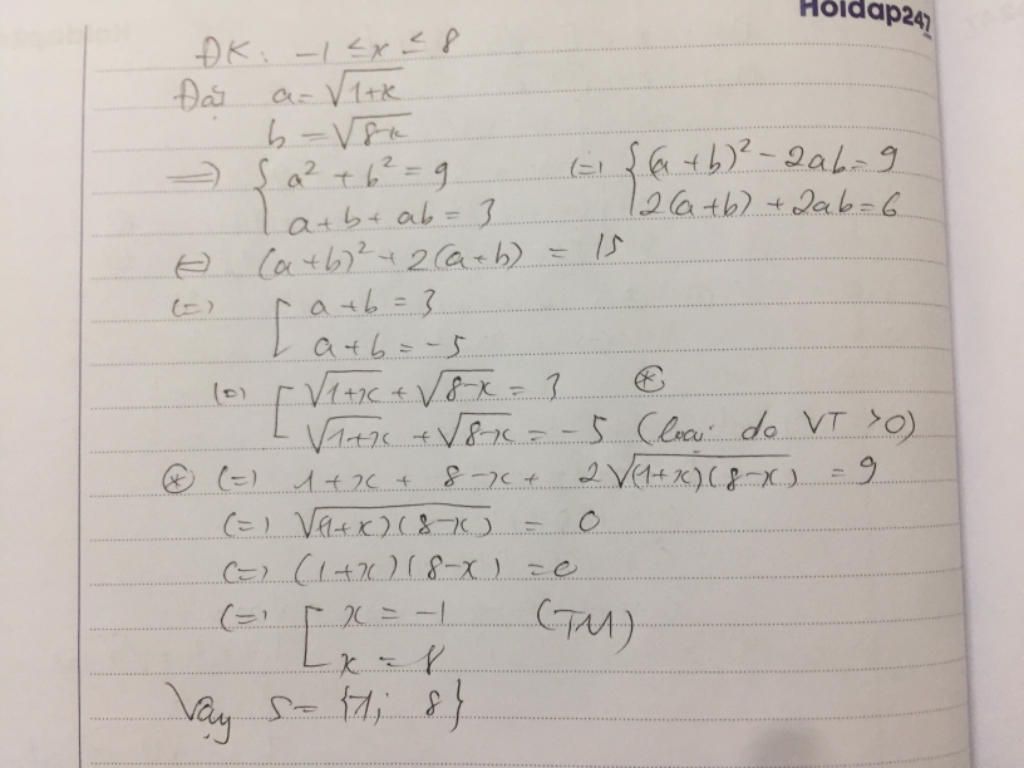 Hoidap247
ĐK: -1 ≤ x ≤ 8
Đặt a = √(1+x)
b = √(8-x)
=> { a² + b² = 9 (=) { (a+b)² - 2ab = 9
a + b + ab = 3 2(a+b) + 2ab = 6
(=) (a+b)² + 2(a+b) = 15
(=) [ a+b = 3
a+b = -5
(=) [ √(1+x) + √(8-x) = 3 (*)
√(1+x) + √(8-x) = -5 (loại do VT >0)
(*) (=) 1+x + 8-x + 2√((1+x)(8-x)) = 9
(=) √((1+x)(8-x)) = 0
(=) (1+x)(8-x) = 0
(=) [ x = -1 (TM)
x = 8
Vậy S = {1; 8}